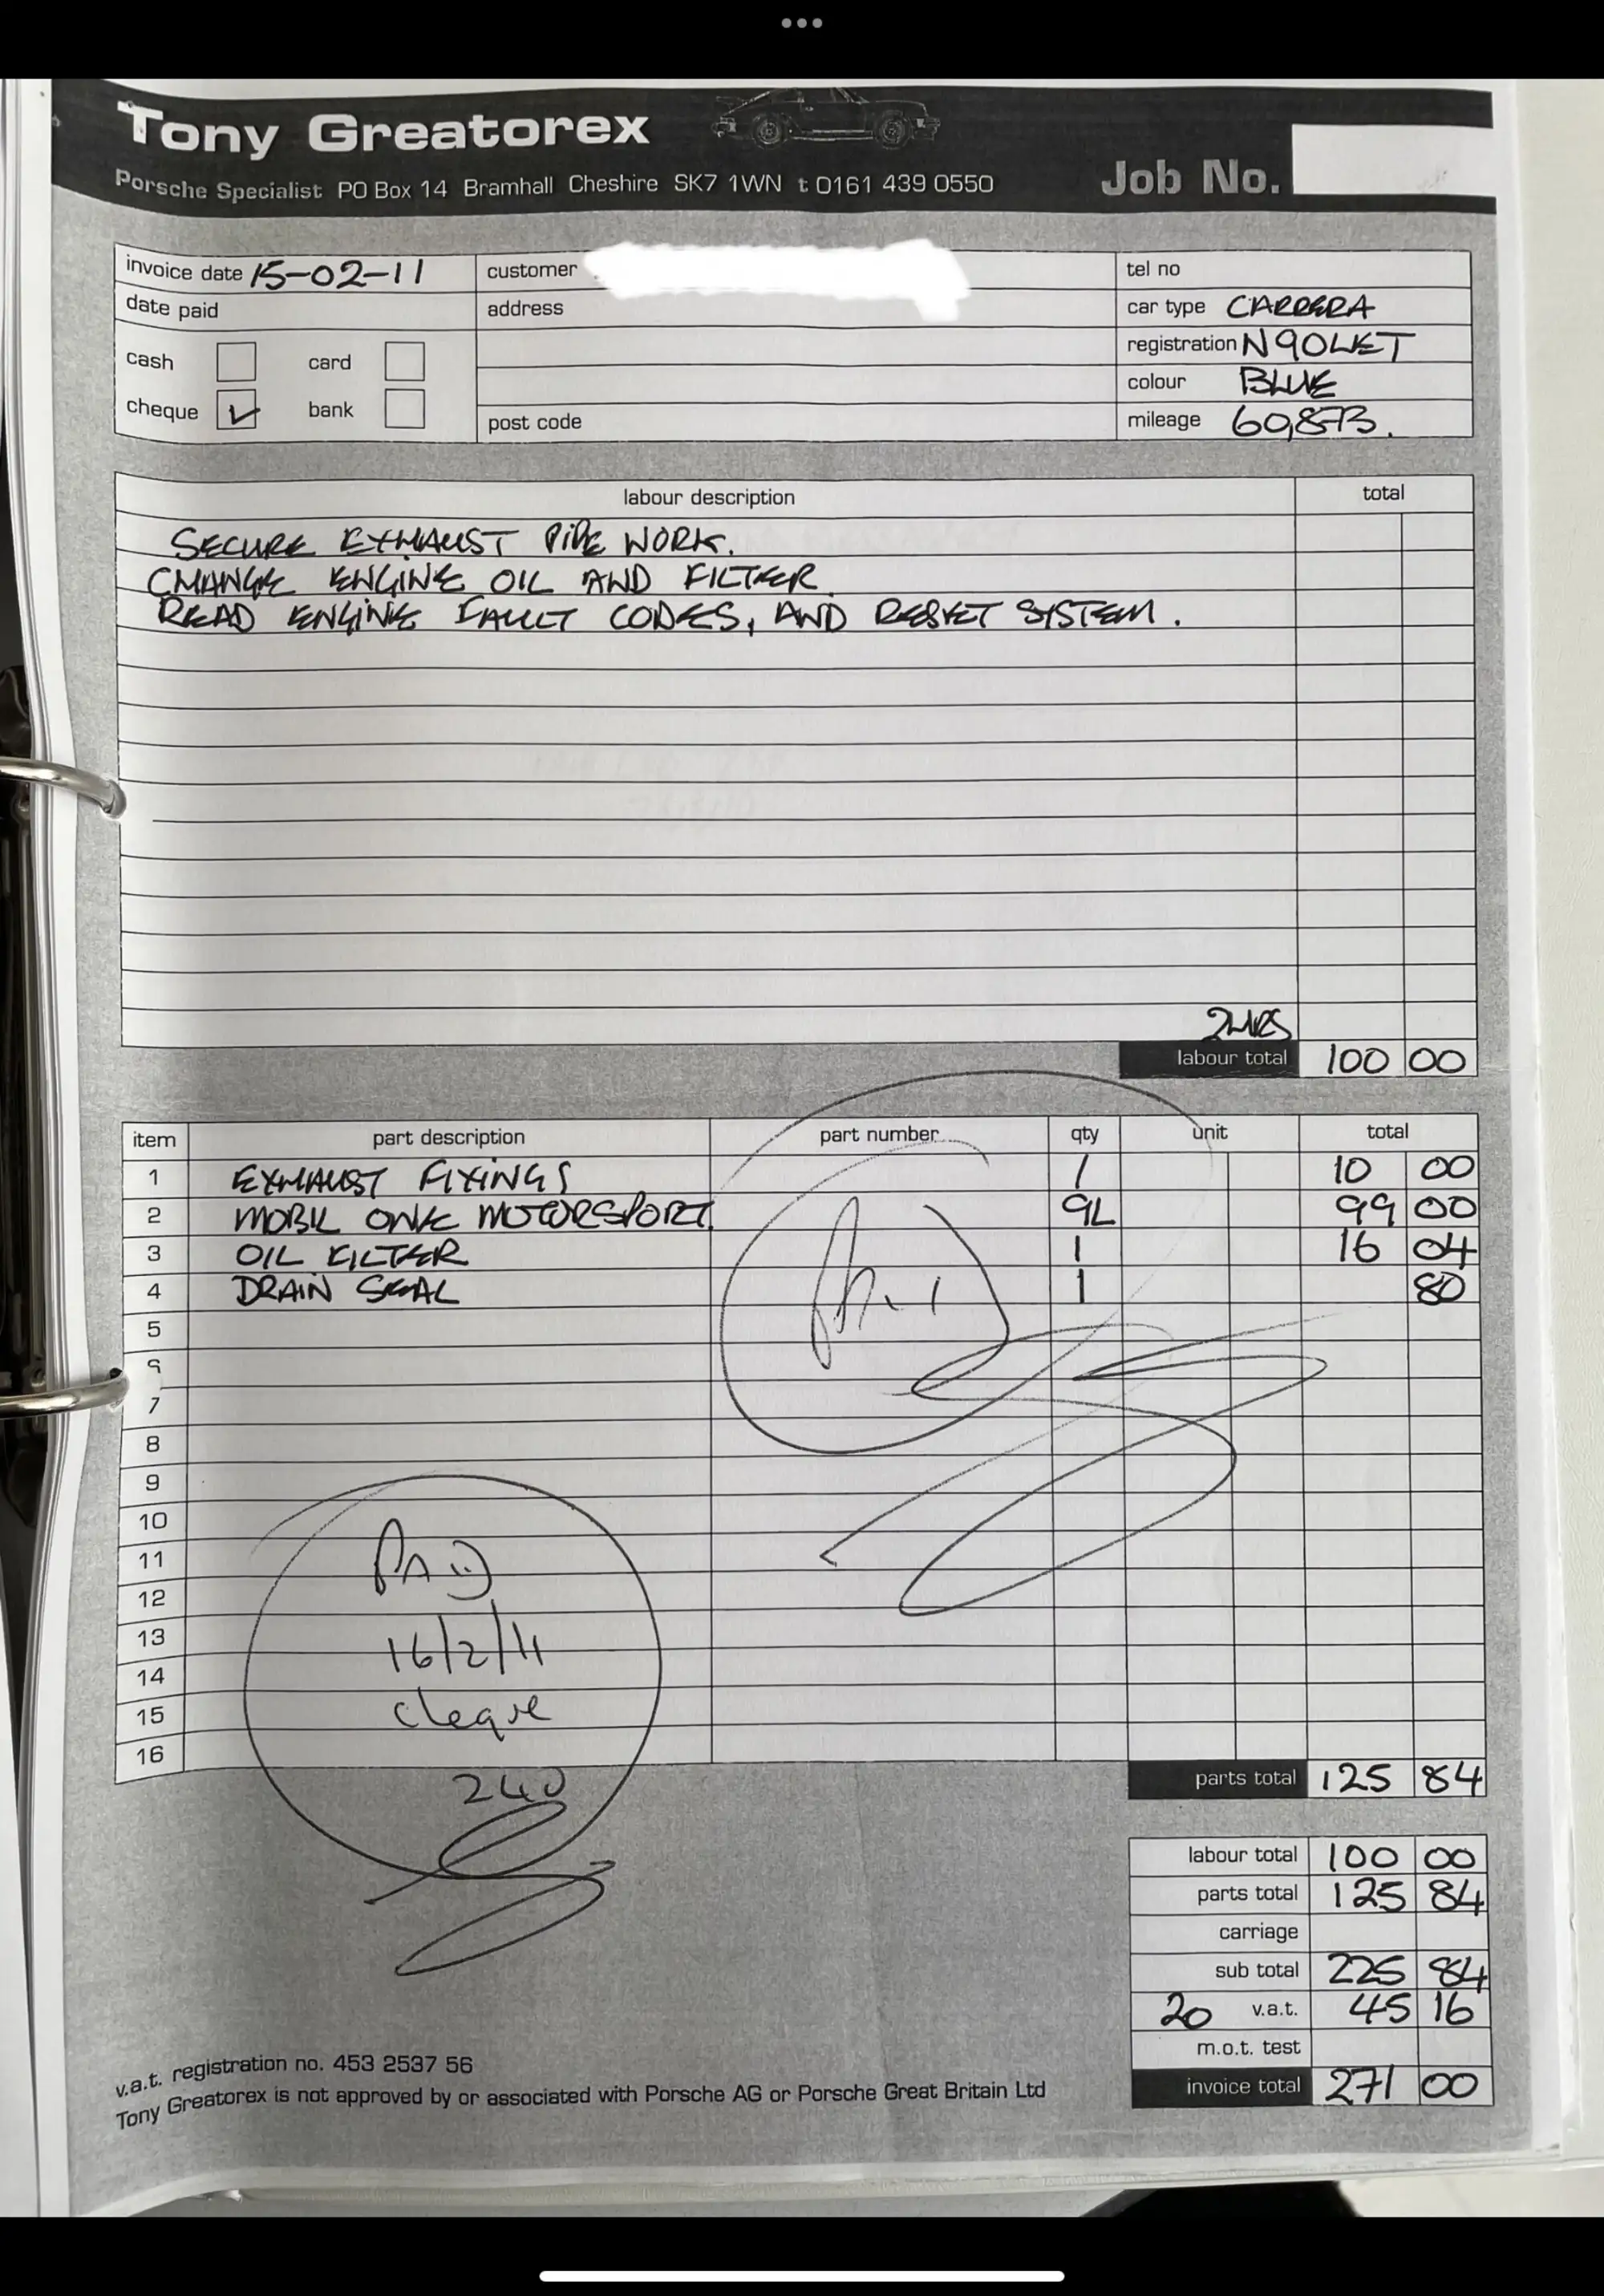 Tony Greatorex
Porsche Specialist PO Box 14 Bramhall Cheshire SK7 1WN t 0161 439 0550
Job No.
invoice date 15-02-11
date paid
cash card
cheque ✓ bank
customer
address
post code
tel no
car type CARRERA
registration N90WET
colour BLUE
mileage 60,873.
labour description total
SECURE EXHAUST PIPE WORK.
CHANGE ENGINE OIL AND FILTER
READ ENGINE FAULT CODES, AND RESET SYSTEM.
2HRS
labour total 100 00
item part description part number qty unit total
1 EXHAUST FIXINGS 1 10 00
2 MOBIL ONE MOTORSPORT. 9L 99 00
3 OIL FILTER 1 16 04
4 DRAIN SEAL 1 80
5
6
7
8
9
10
11
12
13
14
15
16
PAID
16/2/11
cheque
240
parts total 125 84
labour total 100 00
parts total 125 84
carriage
sub total 225 84
20 v.a.t. 45 16
m.o.t. test
invoice total 271 00
v.a.t. registration no. 453 2537 56
Tony Greatorex is not approved by or associated with Porsche AG or Porsche Great Britain Ltd